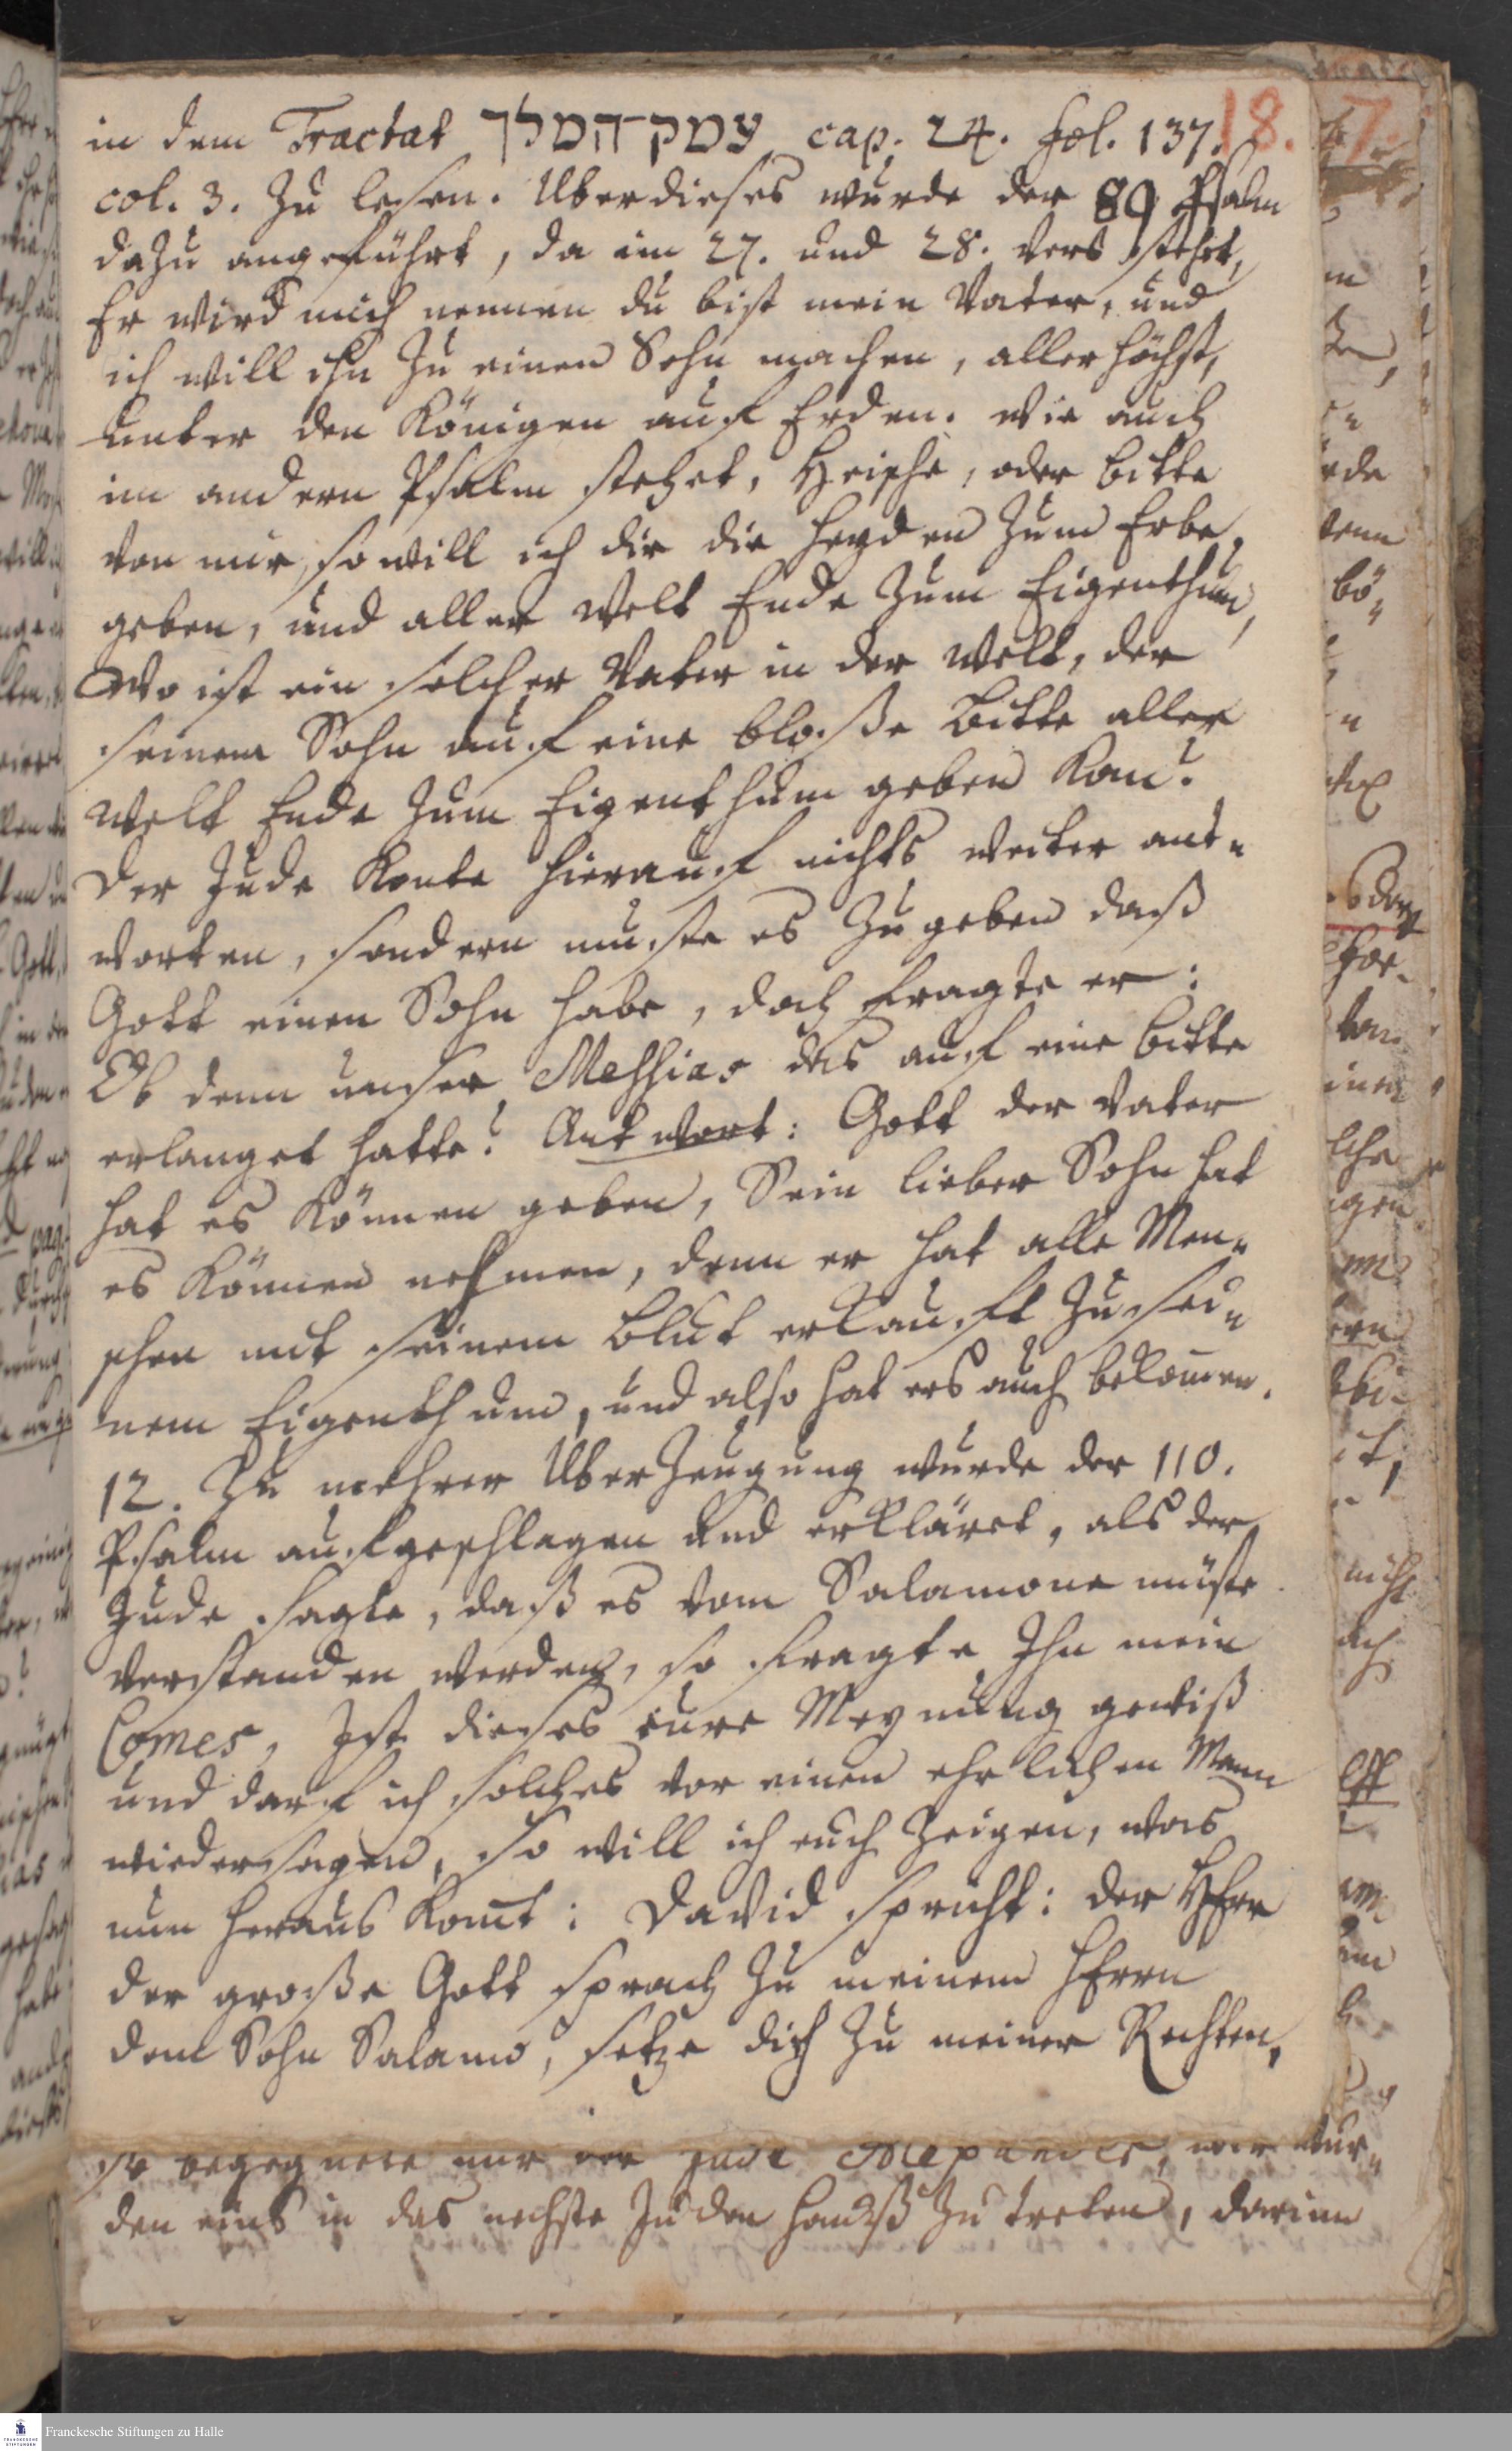 in dem Tractat עמק־המלך cap. 24. fol. 137. 18.
col. 3. Zu lesen. Uber dieses wurde der 89 Psalm
dazu angeführt, da im 27. und 28. Vers stehet,
Er wird mich nennen du bist mein Vater, und
ich will ihn Zu einen Sohn machen, aller höchst,
unter den Königen auf Erden. Wie auch
im andern Psalm stehet, Heische, oder bitte
von mir, so will ich dir die Heyden Zum Erbe,
geben, und aller Welt Ende Zum Eigenthum,
Wo ist ein solcher Vater in der Welt, der
seinem Sohn auf eine blosse Bitte aller
Welt Ende Zum Eigenthum geben Kan?
Der Jude Konte hierauf nichts weiter ant-
worten, sondern muste es Zugeben daß
Gott einen Sohn habe, doch fragte er:
Ob denn unser Messias das auf eine bitte
erlanget hatte? Antwort: Gott der Vater
hat es Können geben, Sein lieber Sohn hat
es Können nehmen, denn er hat alle Men-
schen mit seinem Blut erkauft Zu sei-
nem Eigenthum, und also hat ers auch bekom̄en.
12. Zu mehrer UberZeugung wurde der 110.
Psalm aufgeschlagen und erkläret, als der
Jude sagte, daß es vom Salamone müste
verstanden werden, so fragte Ihn mein
Comes, Ist dieses eure Meynung gewiß
und darf ich solches vor einen ehrlichen Mann
wieder sagen, so will ich euch Zeigen, was
nun heraus Kom̄t: David spricht: der HErr
der grosse Gott sprach Zu meinem HErrn
dem Sohn Salamo, setze dich Zu meiner Rechten,
so begegnete mir der Jude Alexander, wir wur-
den eins in das nechste Juden Hauß Zu treten, darinn
Franckesche Stiftungen zu Halle